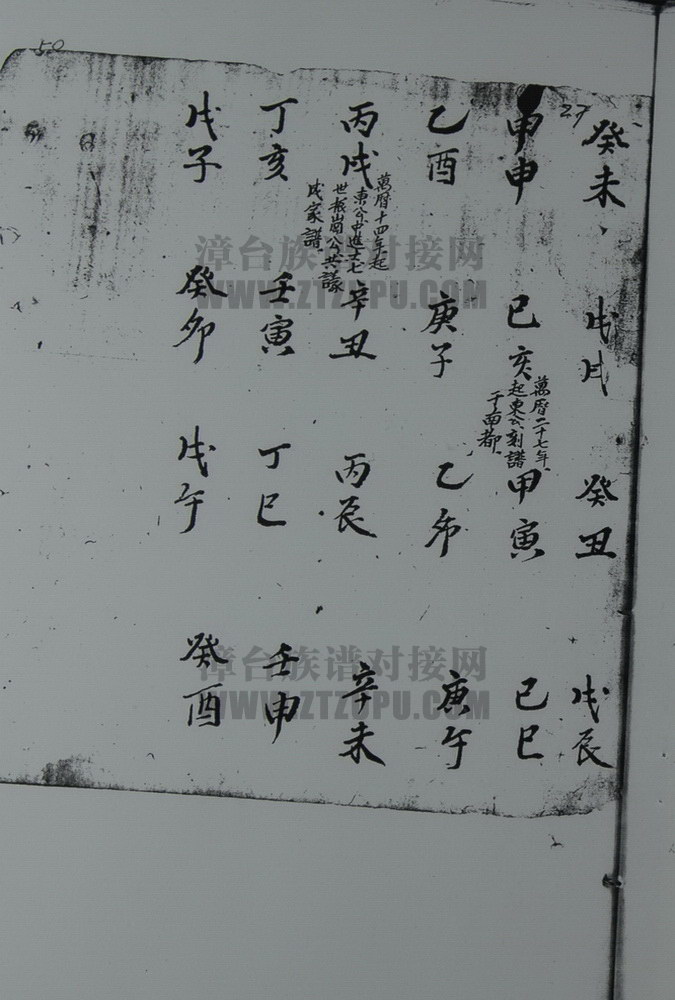 50
27
癸未 戊戌 癸丑 戊辰
甲申 己亥 萬曆二十七年起東公刻譜于南都 甲寅 己巳
乙酉 庚子 乙卯 庚午
丙戌 萬曆十四年起東公中進士七世振崗公共議成家譜 辛丑 丙辰 辛未
丁亥 壬寅 丁巳 壬申
戊子 癸卯 戊午 癸酉
漳台族谱对接网
WWW.ZTZUPU.COM
漳台族谱对接网
WWW.ZTZUPU.COM